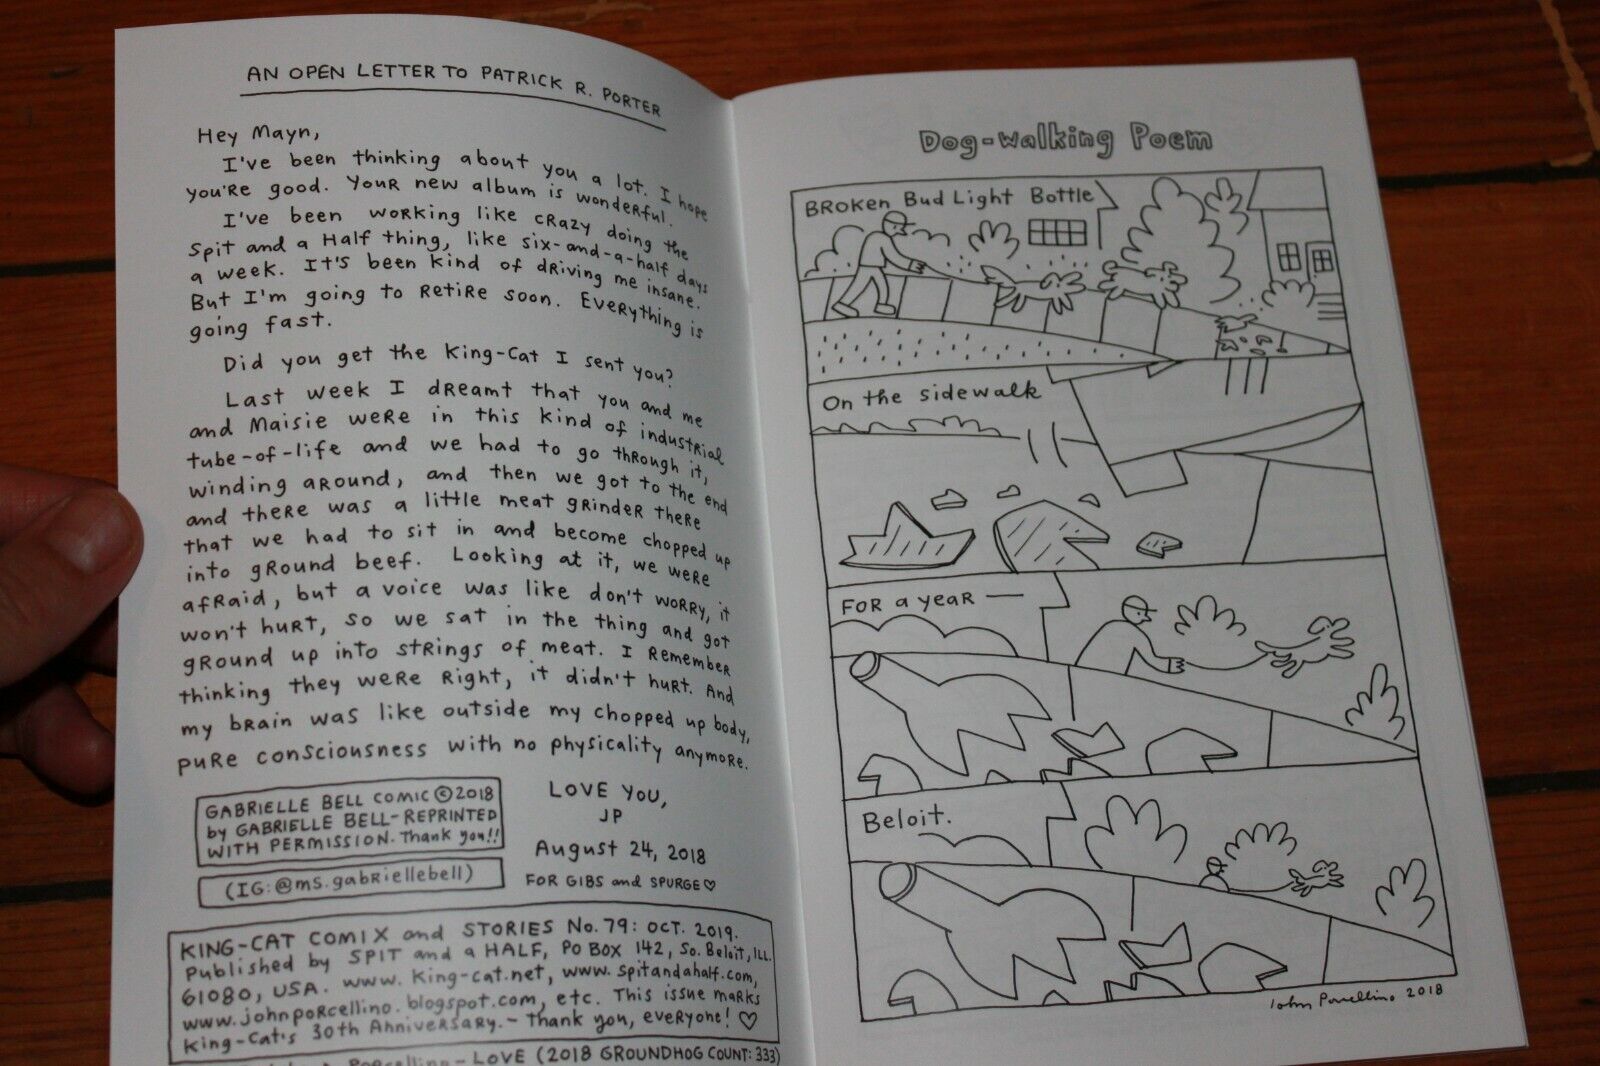 AN OPEN LETTER TO PATRICK R. PORTER
Hey Mayn,
I've been thinking about you a lot. I hope
you're good. Your new album is wonderful.
I've been working like crazy doing the
Spit and a Half thing, like six-and-a-half days
a week. It's been kind of driving me insane.
But I'm going to retire soon. Everything is
going fast.
Did you get the King-Cat I sent you?
Last week I dreamt that you and me
and Maisie were in this kind of industrial
tube-of-life and we had to go through it,
winding around, and then we got to the end
and there was a little meat grinder there
that we had to sit in and become chopped up
into ground beef. Looking at it, we were
afraid, but a voice was like don't worry, it
won't hurt, so we sat in the thing and got
ground up into strings of meat. I remember
thinking they were right, it didn't hurt. And
my brain was like outside my chopped up body,
pure consciousness with no physicality anymore.
LOVE YOU,
JP
August 24, 2018
FOR GIBS and SPURGE♡
GABRIELLE BELL COMIC ©2018
by GABRIELLE BELL-REPRINTED
WITH PERMISSION. Thank you!!
(IG:@ms.gabriellebell)
KING-CAT COMIX and STORIES No. 79: OCT. 2019.
Published by SPIT and a HALF, PO BOX 142, So. Beloit, ILL.
61080, USA. www. king-cat.net, www. spitandahalf.com,
www.johnporcellino.blogspot.com, etc. This issue marks
King-Cat's 30th Anniversary.- Thank you, everyone! ♡
Porcellino - LOVE (2018 GROUNDHOG COUNT: 333)
Dog-walking Poem
Broken Bud Light Bottle
On the sidewalk
For a year —
Beloit.
John Porcellino 2018